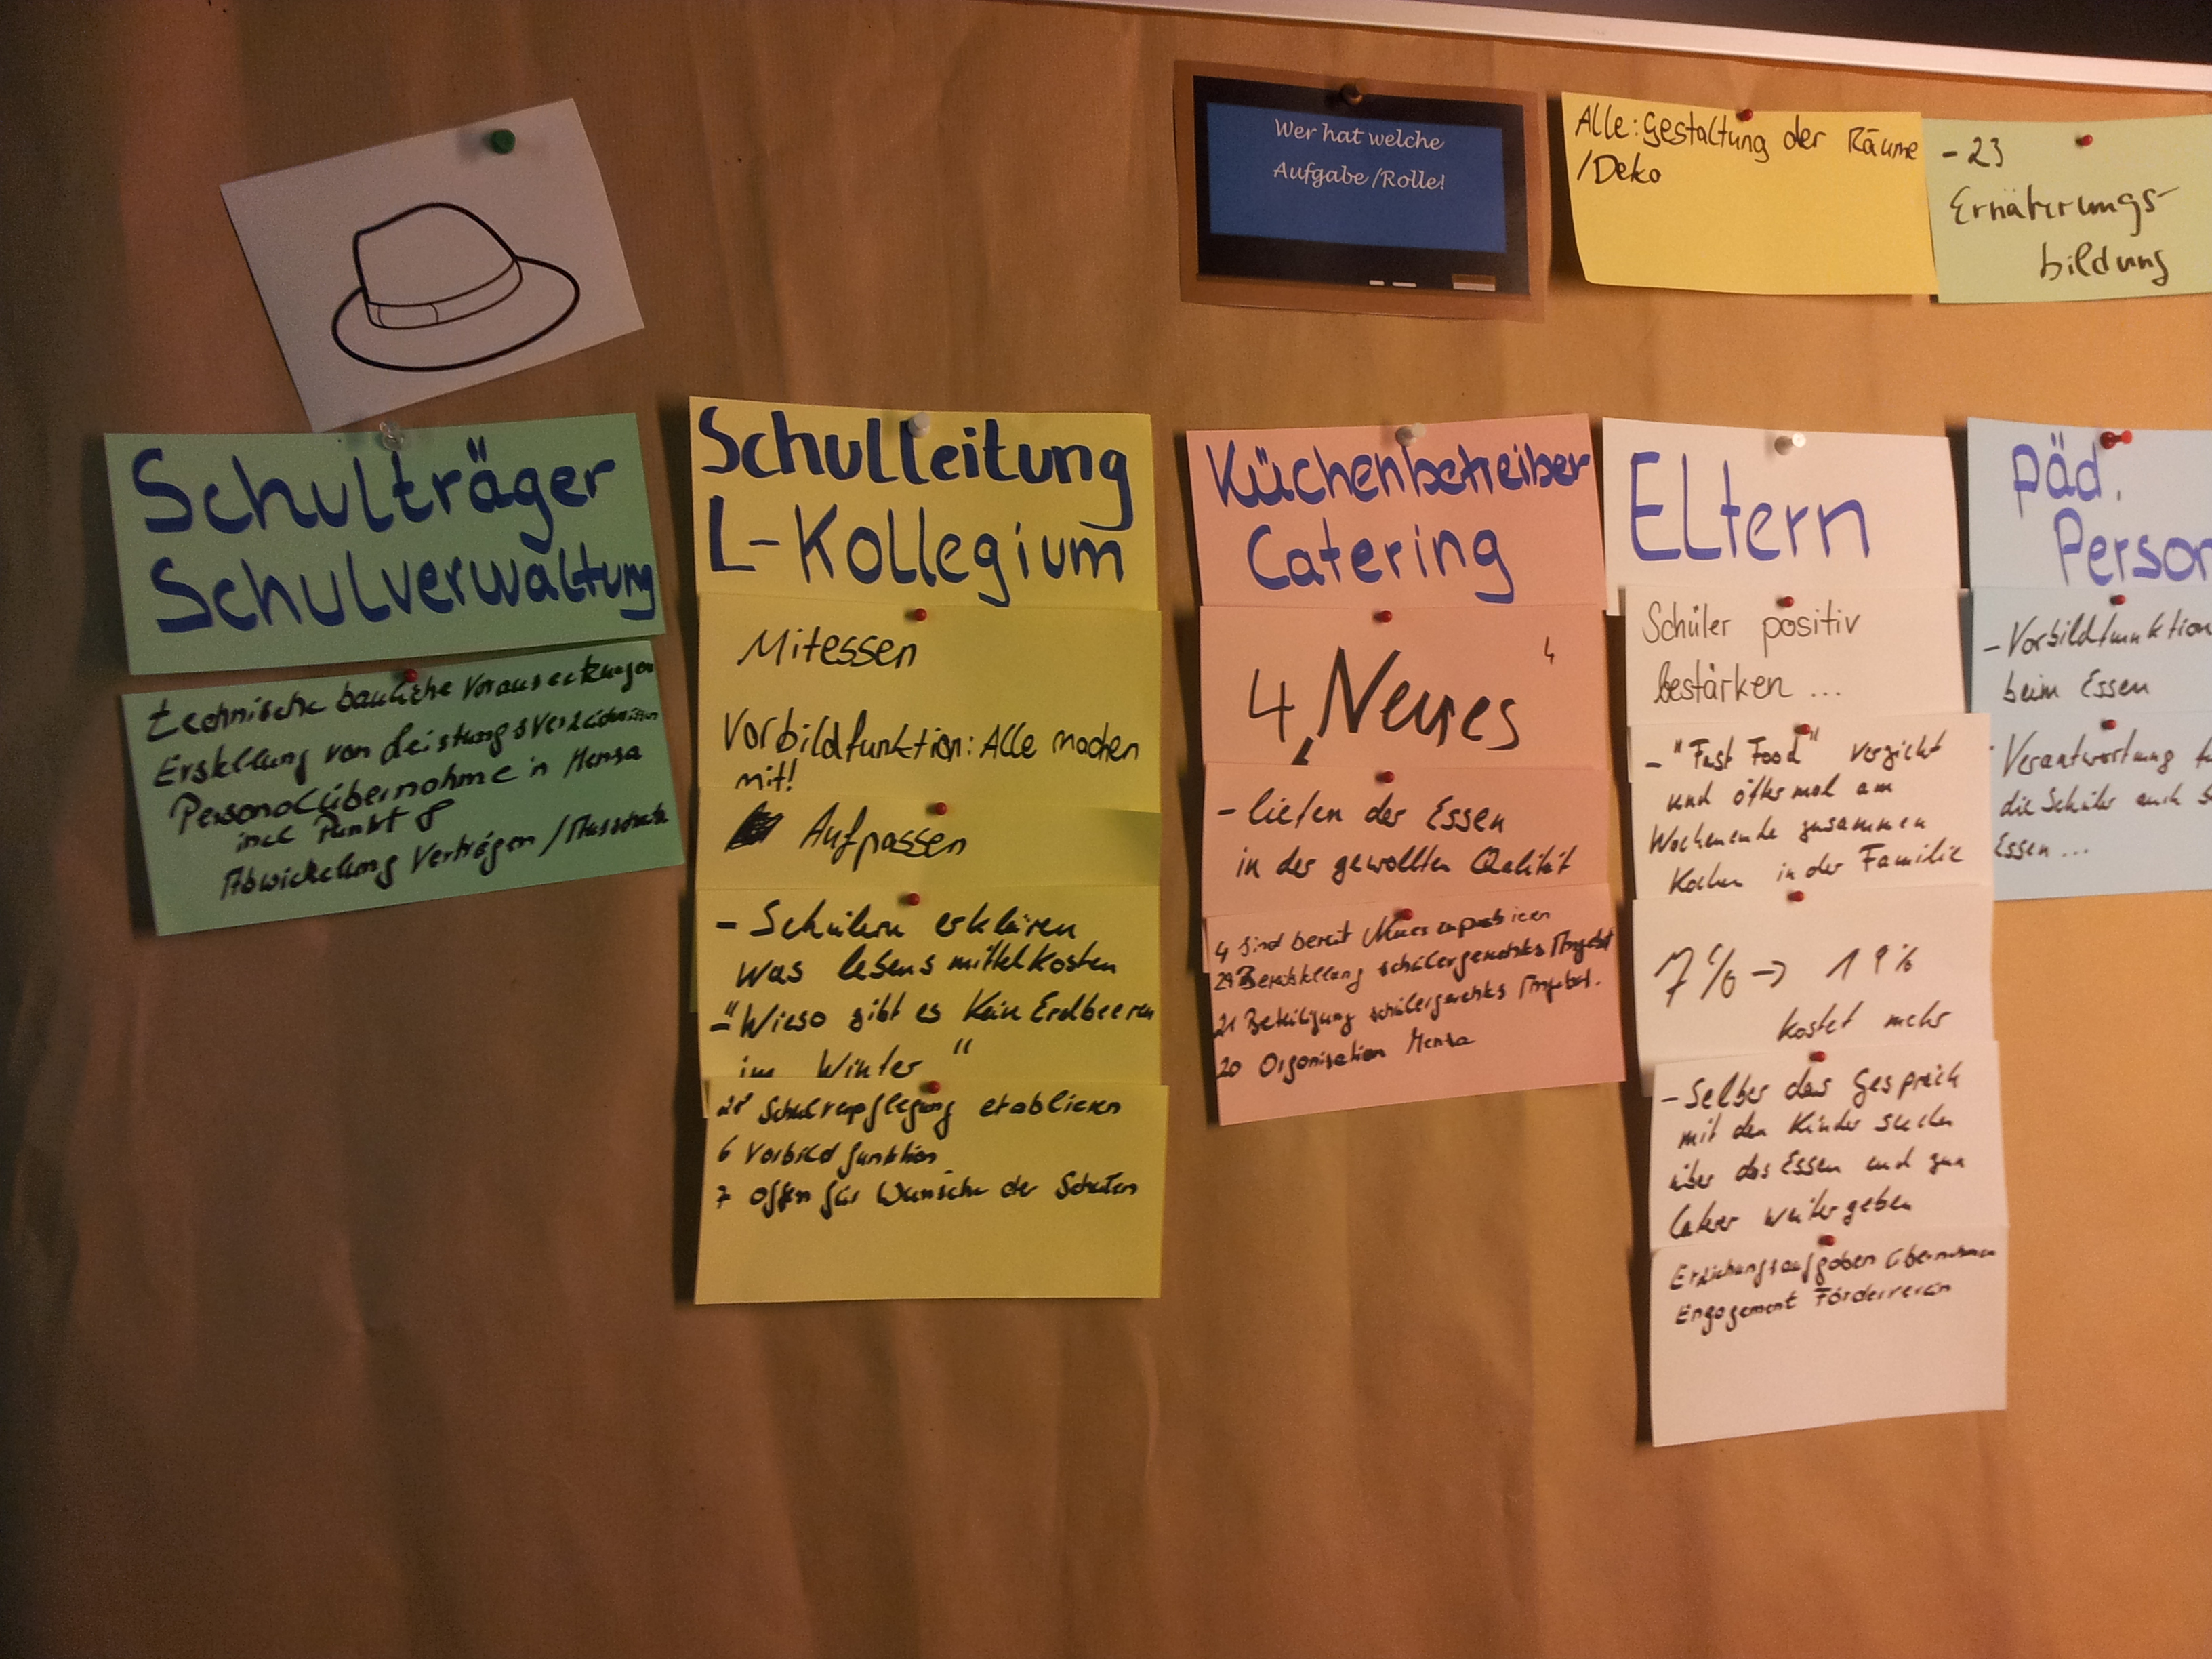 Wer hat welche
Aufgabe/Rolle!
Alle: Gestaltung der Räume
/Deko
- 23
Ernährungs-
bildung
Schulträger
Schulverwaltung
technische bauliche Voraussetzungen
Erstellung von Leistungsverzeichnissen
Personalübernahme in Mensa
incl Punkt 8
Abwickelung Verträgen /
Schulleitung
L-Kollegium
Mitessen
Vorbildfunktion: Alle machen
mit!
Aufpassen
- Schülern erklären
was lebensmittel kosten
- "Wieso gibt es kein Erdbeeren
im Winter"
Schulverpflegung etablieren
6 Vorbildfunktion
7 Offen für Wünsche der Schülern
Küchenbetreiber
Catering
4
4 Neues
- liefern der Essen
in der gewollten Qualität
4 Sind bereit Neues
29 Bereitstellung schülergerechtes Angebot
21 Beteiligung schülergerechtes Angebot.
20 Organisation Mensa
Eltern
Schüler positiv
bestärken ...
- "Fast Food" verzicht
und öfter mal am
Wochenende zusammen
Kochen in der Familie
7% → 19%
kostet mehr
- Selber das Gespräch
mit den Kinder suchen
über das Essen und zum
Caterer weiter geben
Erziehungsaufgaben übernehmen
Engagement Förderverein
Päd.
Person
- Vorbildfunktion
beim Essen
Verantwortung
die Schüler auch
Essen ...